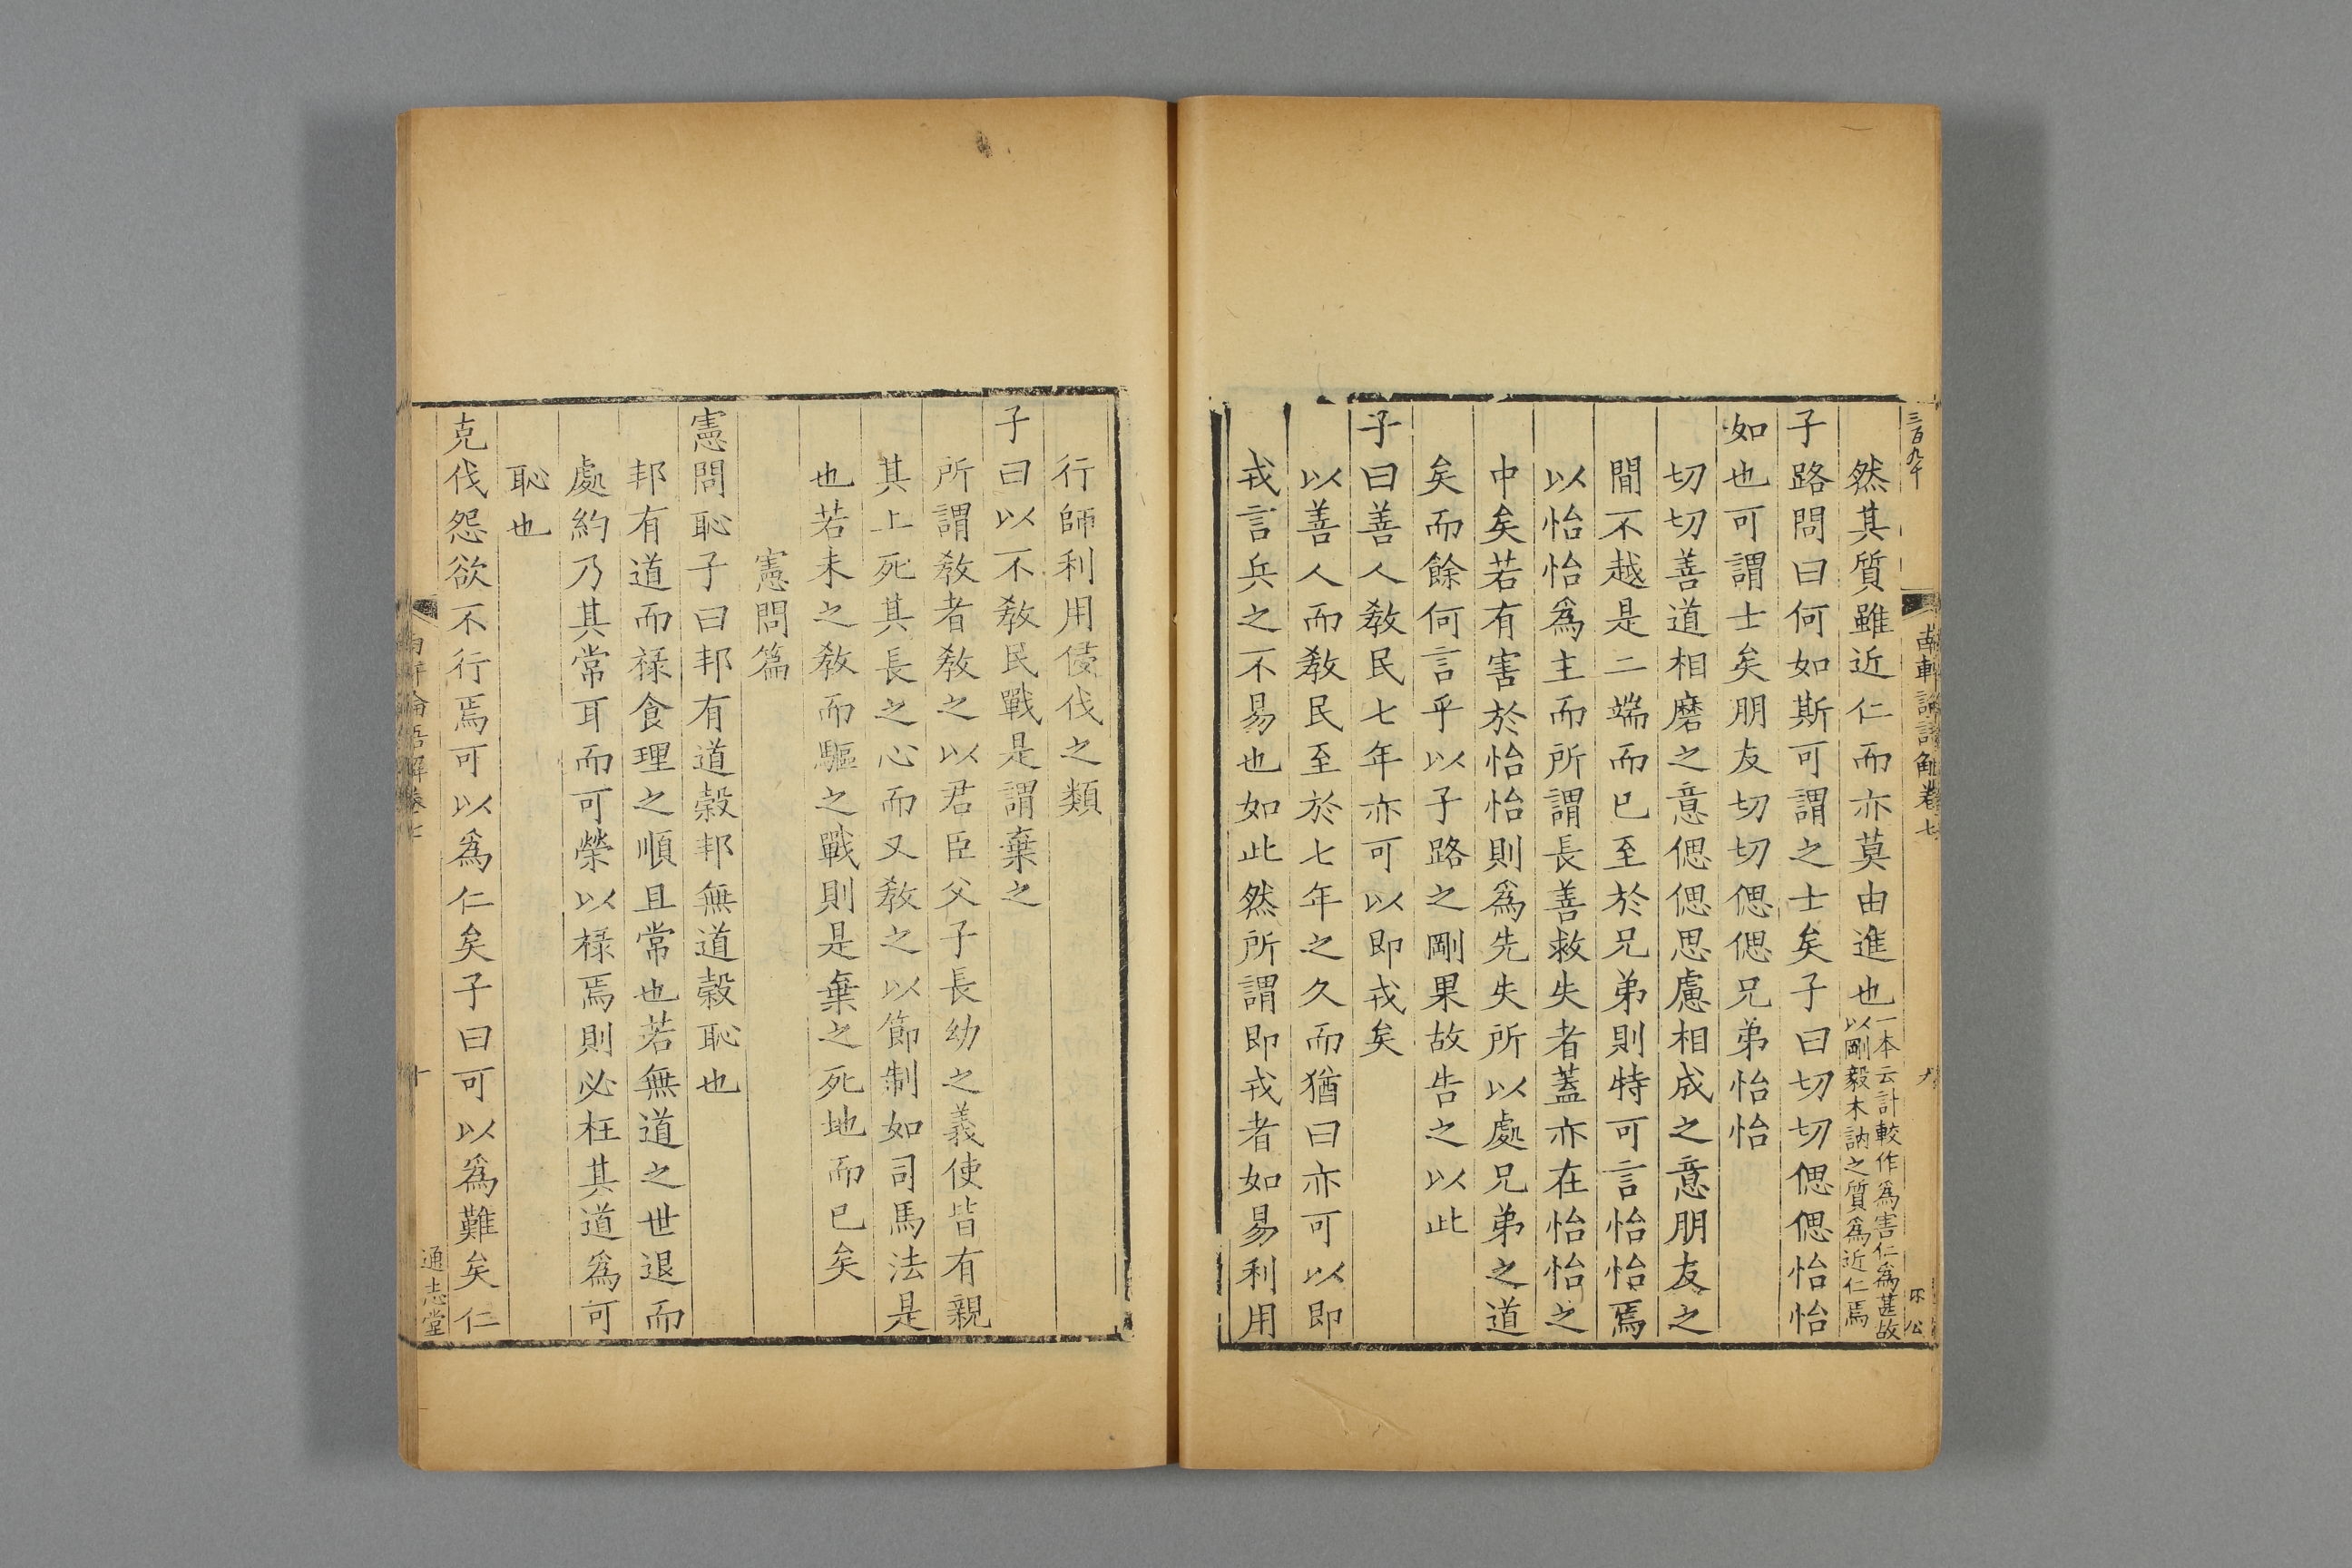 三百九十
南軒論語解卷七
然其質雖近仁而亦莫由進也一本云計較作爲害仁爲甚故以剛毅木訥之質爲近仁焉
子路問曰何如斯可謂之士矣子曰切切偲偲怡怡
如也可謂士矣朋友切切偲偲兄弟怡怡
切切善道相磨之意偲偲思慮相成之意朋友之
間不越是二端而已至於兄弟則特可言怡怡焉
以怡怡爲主而所謂長善救失者蓋亦在怡怡之
中矣若有害於怡怡則爲先失所以處兄弟之道
矣而餘何言乎以子路之剛果故告之以此
子曰善人敎民七年亦可以即戎矣
以善人而敎民至於七年之久而猶曰亦可以即
戎言兵之不易也如此然所謂即戎者如易利用
行師利用侵伐之類
子曰以不敎民戰是謂棄之
所謂敎者敎之以君臣父子長幼之義使皆有親
其上死其長之心而又敎之以節制如司馬法是
也若未之敎而驅之戰則是棄之死地而已矣
憲問篇
憲問恥子曰邦有道榖邦無道榖恥也
邦有道而祿食理之順且常也若無道之世退而
處約乃其常耳而可榮以祿焉則必枉其道爲可
恥也
克伐怨欲不行焉可以爲仁矣子曰可以爲難矣仁
南軒論語解卷七
十
通志堂